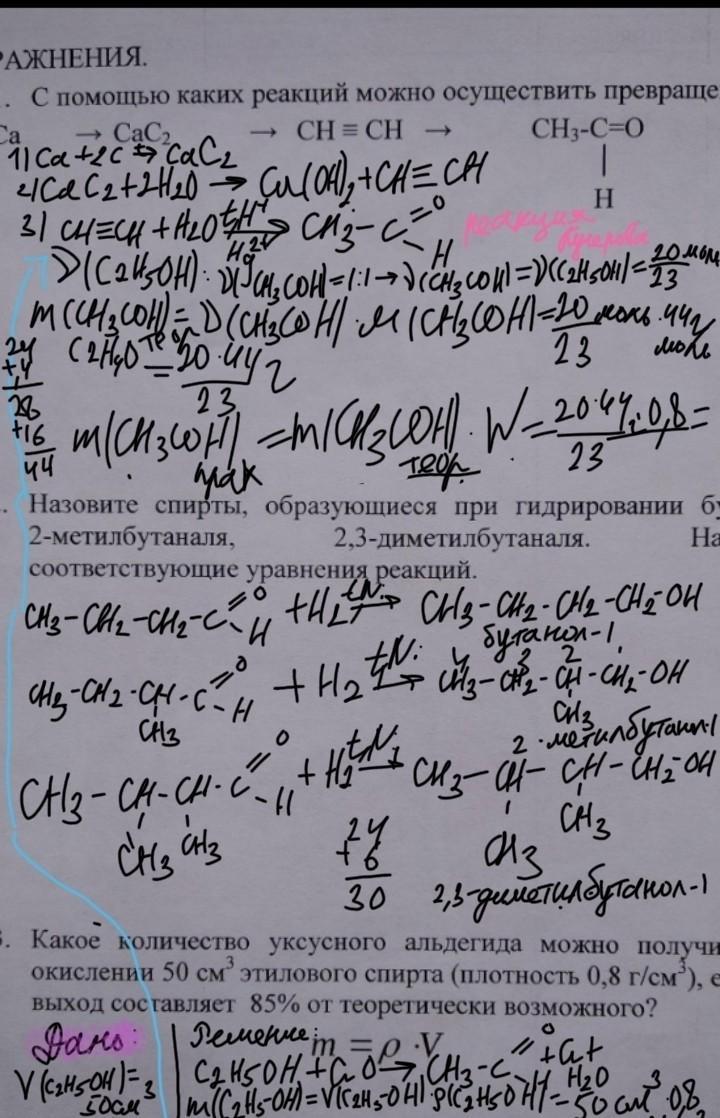 РАЖНЕНИЯ.
. С помощью каких реакций можно осуществить превраще
Ca → CaC₂ → CH ≡ CH → CH₃-C=O
|
H
1) Ca + 2C → CaC₂
2) CaC₂ + 2H₂O → Ca(OH)₂ + CH≡CH
3) CH≡CH + H₂O t,H⁺ Hg²⁺ → CH₃-C=O
H
реакция Кучерова
ν(C₂H₅OH) : ν(CH₃COH) = 1:1 → ν(CH₃COH) = ν(C₂H₅OH) = 20/23 моль
m(CH₃COH) = ν(CH₃COH) · M(CH₃COH) = 20/23 моль · 44 г/моль
теор
C₂H₄O = 20·44/23 г
24
+4
28
+16
44
m(CH₃COH) прак = m(CH₃COH) теор. · W = 20·44·0,8/23 =
. Назовите спирты, образующиеся при гидрировании бу
2-метилбутаналя, 2,3-диметилбутаналя. На
соответствующие уравнения реакций.
CH₃-CH₂-CH₂-C=O
H
+ H₂ t,Ni → CH₃-CH₂-CH₂-CH₂-OH
бутанол-1
CH₃-CH₂-CH-C=O
H
CH₃
+ H₂ t,Ni → 4 3 2
CH₃-CH₂-CH-CH₂-OH
CH₃
2-метилбутанол-1
CH₃-CH-CH-C=O
H
CH₃ CH₃
+ H₂ t,Ni → CH₃-CH-CH-CH₂-OH
CH₃ CH₃
24
+6
30
2,3-диметилбутанол-1
3. Какое количество уксусного альдегида можно получи
окислении 50 см³ этилового спирта (плотность 0,8 г/см³), е
выход составляет 85% от теоретически возможного?
Дано:
V(C₂H₅OH)=
50см³
Решение: m = ρ · V
C₂H₅OH + CuO → CH₃-C=O
H
+ Cu +
H₂O
m(C₂H₅OH) = V(C₂H₅OH) · ρ(C₂H₅OH) = 50 см³ · 0,8